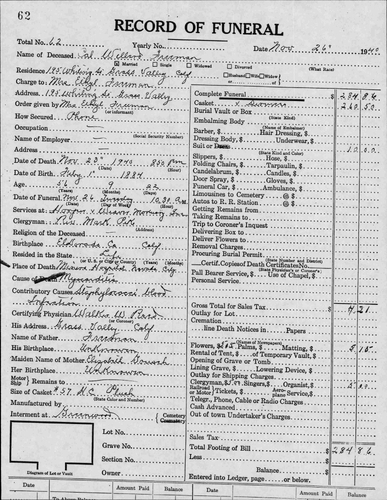 62
RECORD OF FUNERAL
Total No. 62 Yearly No. Date Nov. 26 1940
Name of Deceased Willard Freeman
Married Single Widowed Divorced (What Race)
Residence 195 Whiting St Grass Valley Calif
Charge to Mrs Ethyl Freeman
Address 195 Whiting St. Grass Valley
Order given by Mrs Ethyl Freeman
How Secured Phone
Occupation (Social Security Number)
Name of Employer
Address
Date of Death Nov. 23 1940
Date of Birth Feb'y 1 1884
Age 56 9 22
Date of Funeral Nov 26 10:30 A.M.
Services at Hooper & Weaver Mortuary
Clergyman Rev. Mark
Religion of the Deceased
Birthplace El Dorado Co Calif
Resided in the State Life
Place of Death Miners Hospital Nevada City
Cause of Death
Contributory Causes Staphylococci Blood
Certifying Physician Walter W. Reed
His Address Grass Valley Calif
Name of Father Freeman
His Birthplace Unknown
Maiden Name of Mother Elizabeth
Her Birthplace Unknown
Motor Ship to
Size of Casket Plush
(State Color and Number)
Manufactured by
Interment at Greenwood Cemetery
Lot No.
Grave No.
Section No.
Owner
Diagram of Lot or Vault
Complete Funeral 284 86
Casket 260 50
Burial Vault or Box
(State Kind)
Embalming Body
(Name of Embalmer)
Barber, $ Hair Dressing, $
Dressing Body, Underwear, $
Suit or Dress 10 00
(State Kind)
Slippers, $ Hose, $
Folding Chairs, $ Tarpaulin, $
Candelabrum, $ Candles, $
Door Spray, $ Gloves, $
Funeral Car, $ Ambulance, $
Limousines to Cemetery @ $
Autos to R. R. Station @ $
Getting Remains from
Taking Remains to
Trip to Coroner's Inquest
Delivering Box to
Deliver Flowers to
Removal Charges
Procuring Burial Permit
(State Number and District)
Certif. Copies of Death Certificate No.
(State Physician's or Coroner's)
Pall Bearer Service, $ Use of Chapel, $
Personal Service
Gross Total for Sales Tax 4 21
Outlay for Lot
Cremation
line Death Notices in Papers
(Names of Newspapers)
Flowers, $ Palms, $ Matting, $ 5 15
Rental of Tent, $ of Temporary Vault, $
Opening of Grave or Tomb
Lining Grave, $ Lowering Device, $
Outlay for Shipping Charges
Clergyman, $ Singers, $ Organist, $
Railroad Tickets, $ Aeroplane Service, $
Telegr., Phone, Cable or Radio Charges
Cash Advanced
Out of town Undertaker's Charges
Sales Tax
Total Footing of Bill 284 86
Less
Balance
Entered into Ledger, page or below.
Date Amount Paid Balance Date Amount Paid Balance